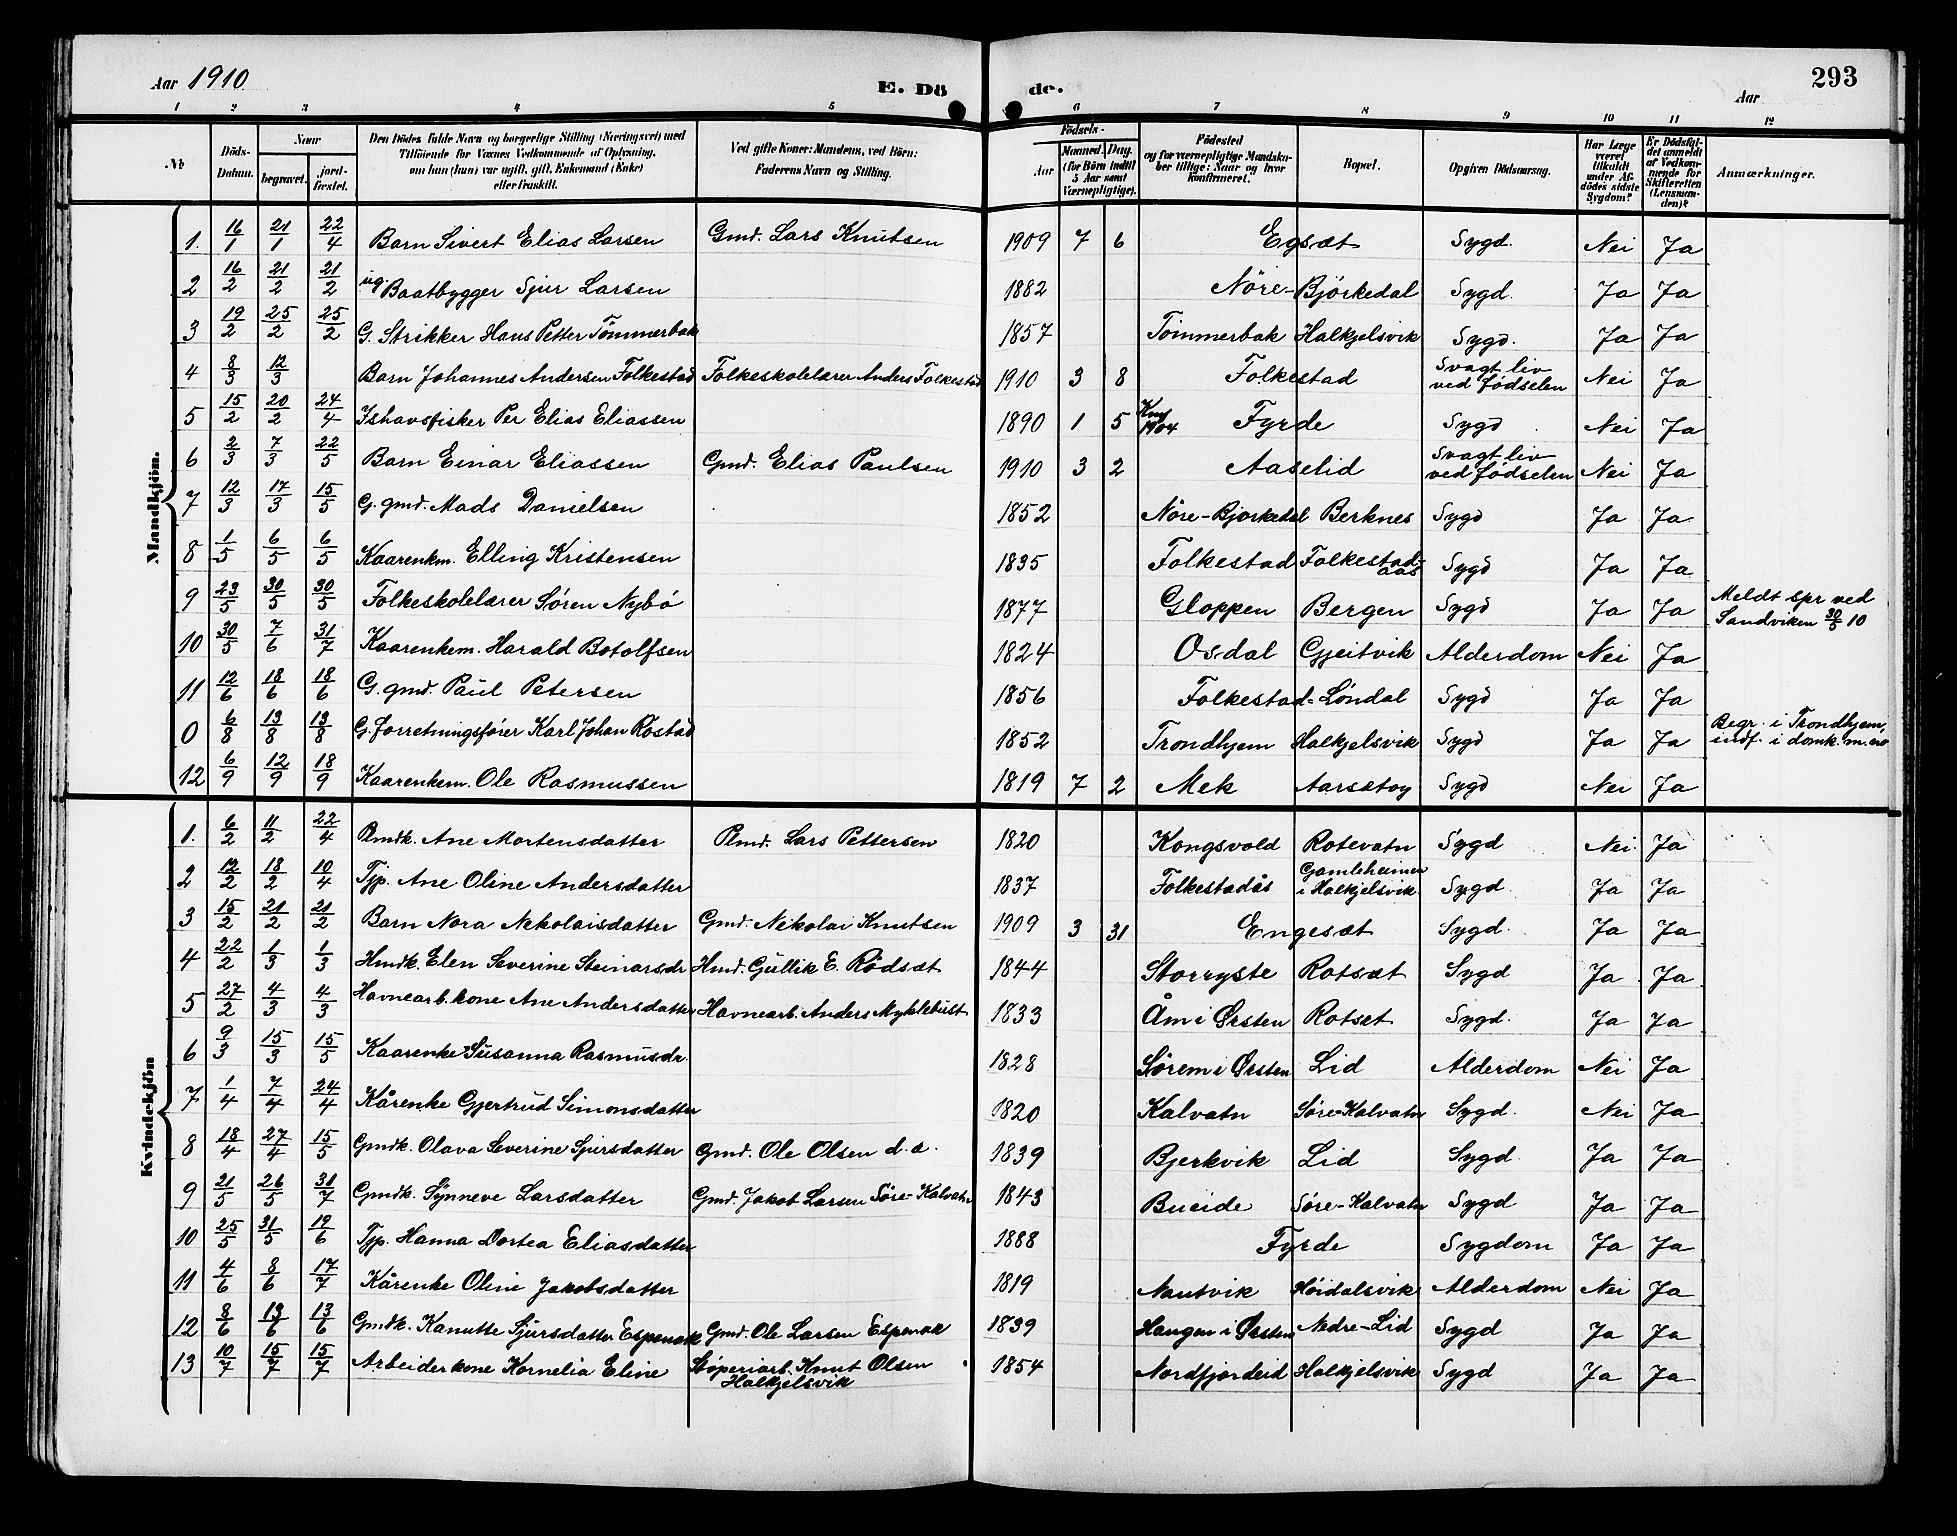 Aar 1910
E. Dö de.
Aar
293
1 2 3 4 5 6 7 8 9 10 11 12
No
Döds-Datum.
Naar
begravet.
jord-fæstet.
Den Dödes fulde Navn og borgerlige Stilling (Næringsvei) med Tilföiende for Voxnes Vedkommende af Oplysning, om han (hun) var ugift, gift, Enkemand (Enke) eller fraskilt.
Ved gifte Koner: Mandens, ved Börn: Faderens Navn og Stilling.
Födsels-
Aar
Maaned. Dag. (for Börn indtil 5 Aar samt Værnepligtige).
Födested og for værnepligtige Mandskaber tillige: Naar og hvor konfirmeret.
Bopæl.
Opgiven Dödsaarsag.
Har Læge været tilkaldt under Afdödes sidste Sygdom?
Er Dödsfaldet anmeldt af Vedkommende for Skifteretten (Lensmanden)?
Anmærkninger.
Mandkjön.
1. 16/1 21/1 22/4 Barn Sivert Elias Larsen Gmd. Lars Knutsen 1909 7 6 Egsæt Sygd. Nei Ja
2 16/2 21/2 21/2 ug. Baatbygger Sjur Larsen 1882 Nöre-Björkedal Sygd. Ja Ja
3 19/2 25/2 25/2 G. Strikker Hans Petter Tömmerbak 1857 Tömmerbak Halkjelsvik Sygd. Ja Ja
4 8/3 12/3 Barn Johannes Andersen Folkestad Folkeskolelærer Anders Folkestad 1910 3 8 Folkestad Svagt liv ved fødselen Nei Ja
5 15/2 20/2 24/4 Ishavsfisker Per Elias Eliassen 1890 1 5 Knf 1904 Fyrde Sygd Nei Ja
6 2/3 7/3 22/5 Barn Einar Eliassen Gmd. Elias Paulsen 1910 3 2 Aaselid Svagt liv ved fødselen Nei Ja
7 12/3 17/3 15/5 G. gmd. Mads Danielsen 1852 Nöre-Bjorkedal Berknes Sygd Ja Ja
8 1/5 6/5 6/5 Kaarenkm. Elling Kristensen 1835 Folkestad Folkestad-aas Sygd Ja Ja
9 23/5 30/5 30/5 Folkeskolelærer Søren Nybö 1877 Gloppen Bergen Sygd Ja Ja Meldt spr ved Sandviken 30/5 10
10 30/5 7/6 31/7 Kaarenkem. Harald Botolfsen 1824 Osdal Gjeitvik Alderdom Nei Ja
11 12/6 18/6 18/6 G. gmd. Paul Petersen 1856 Folkestad-Løndal Sygd Ja Ja
0 6/8 13/8 13/8 G. forretningsfører Karl Johan Röstad 1852 Trondhjem Halkjelsvik Sygd Ja Ja Begr. i Trondhjem, indf. i domk.
12 6/9 12/9 18/9 Kaarenkem. Ole Rasmussen 1819 7 2 Mek Aarsetøy Sygd Nei Ja
Kvindekjön
1. 6/2 11/2 22/4 Pmdk. Ane Mortensdatter Plmd. Lars Pettersen 1820 Kongsvold Rotevatn Sygd Nei Ja
2 12/2 18/2 10/4 Tjp. Ane Oline Andersdatter 1837 Folkestadås Gamleheimen i Halkjelsvik Sygd. Ja Ja
3 15/2 21/2 21/2 Barn Nora Nekolaisdatter Gmd. Nikolai Knutsen 1909 3 31 Engesæt Sygd. Ja Ja
4 22/2 1/3 1/3 Hmdk. Elen Severine Steinarsdr Hmd. Gullik E. Rödsæt 1844 Storryste Rotsæt Sygd Ja Ja
5 27/2 4/3 4/3 Havnearb. kone Ane Andersdatter Havnearb. Anders Myklebust 1833 Åm i Ørsten Rotset Sygd. Ja Ja
6 9/3 15/3 15/5 Kaarenke Susanna Rasmusdr. 1828 Sörem i Ørsten Lid Alderdom Nei Ja
7 1/4 7/4 24/4 Kårenke Gjertrud Simonsdatter 1820 Kalvatn Søre-Kalvatn Sygd. Nei Ja
8 18/4 27/4 15/5 Gmdk. Olava Severine Sjursdatter Gmd. Ole Olsen d.a. 1839 Bjerkvik Lid Sygd. Ja Ja
9 21/5 26/5 31/7 Gmdk. Synneve Larsdatter Gmd. Jakob Larsen Søre-Kalvatn 1843 Bueide Søre-Kalvatn Sygd Ja Ja
10 25/5 31/5 19/6 Tjp. Hanna Dortea Eliasdatter 1888 Fyrde Sygdom Ja Ja
11 4/6 8/6 17/7 Kårenke Oline Jakobsdatter 1819 Nautvik Høidalsvik Alderdom Nei Ja
12 8/6 13/6 13/6 Gmdk. Kanutte Sjursdatter Espenak Gmd. Ole Larsen Espenak 1839 Haugen i Ørsten Nedre-Lid Sygd Ja Ja
13 10/7 15/7 15/7 Arbeiderkone Kornelia Eline Støperiarb. Knut Olsen Halkjelsvik 1854 Nordfjordeid Halkjelsvik Sygd Ja Ja